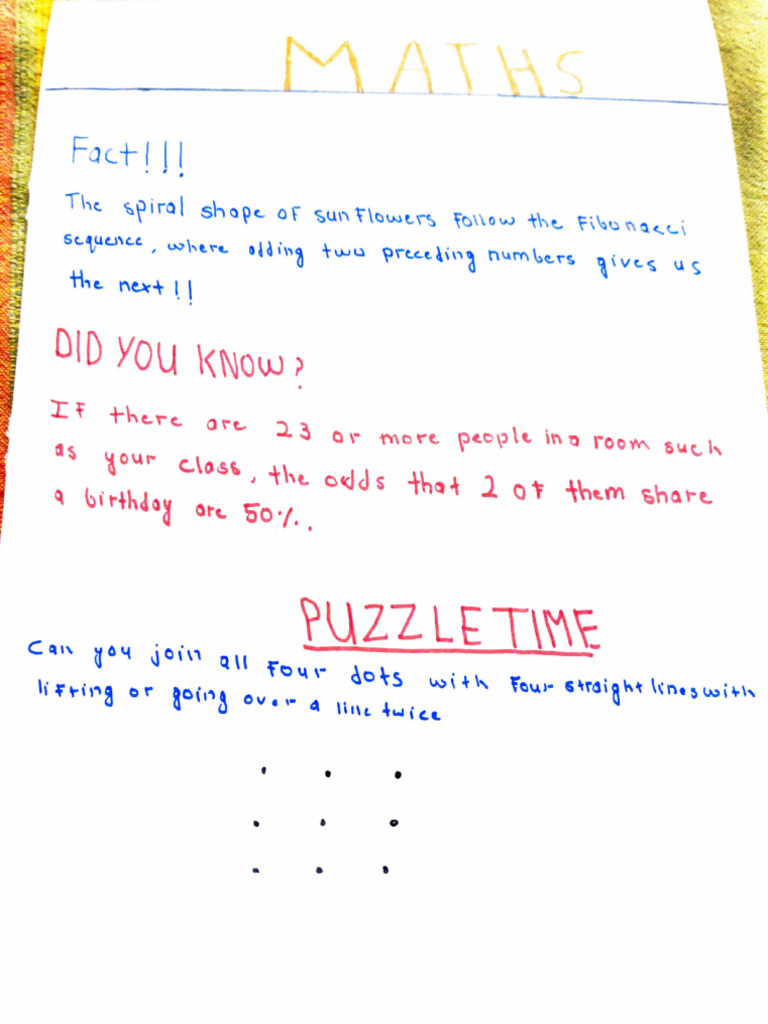 MATHS
Fact!!!
The spiral shape of sunflowers follow the Fibonacci
sequence, where adding two preceding numbers gives us
the next!!
DID YOU KNOW?
If there are 23 or more people in a room such
as your class, the odds that 2 of them share
a birthday are 50%.
PUZZLE TIME
Can you join all four dots with four straight lines with
lifting or going over a line twice